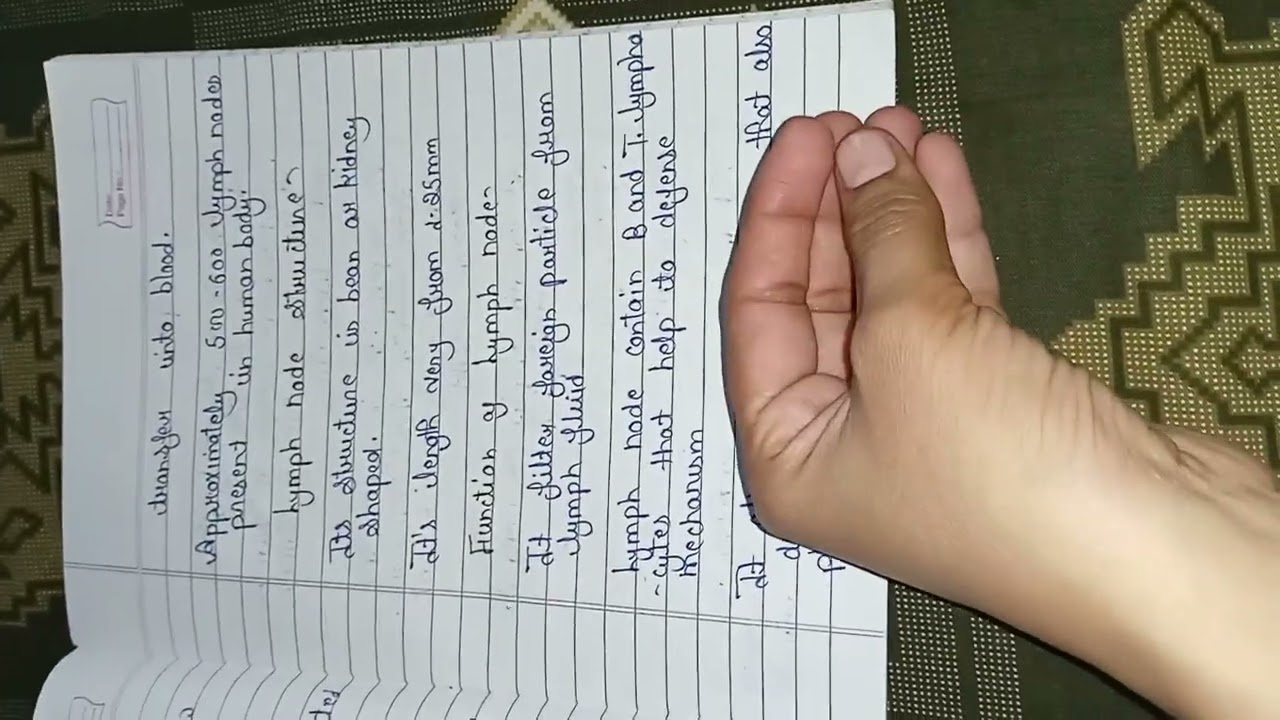 Date:
Page No:
transfer into blood.
Approximately 500-600 lymph nodes
present in human body.
Lymph node structure:-
Its structure is bean or kidney
shaped.
It's length very from 1-25mm
Function of lymph node-
It filter foreign particle from
lymph fluid
Lymph node contain B and T. lympho
-cytes that help to defense
mechanism
It that also